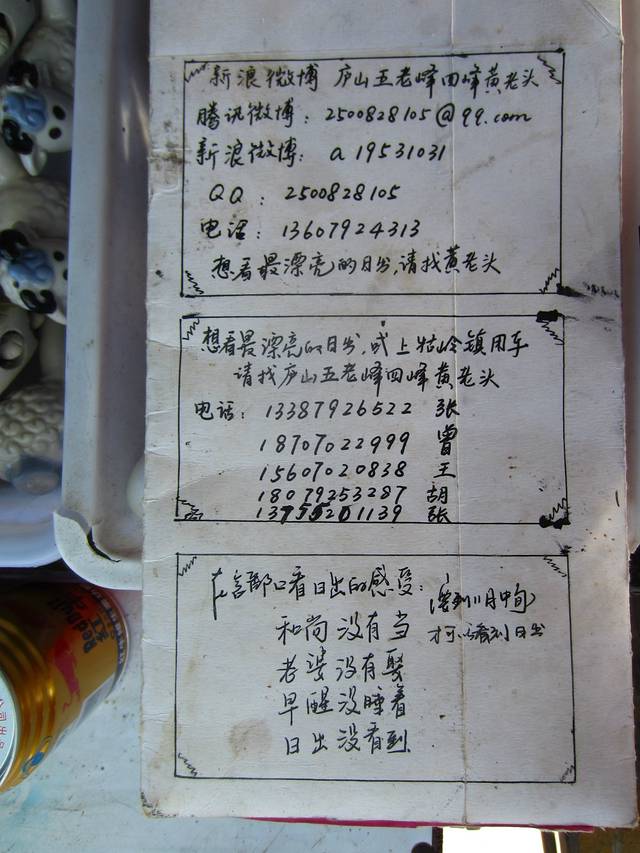 新浪微博 庐山五老峰四峰黄老头
腾讯微博：2500828105@qq.com
新浪微博：a19531031
QQ：2500828105
电话：13607924313
想看最漂亮的日出,请找黄老头
想看最漂亮的日出,或上牯岭镇用车
请找庐山五老峰四峰黄老头
电话：13387926522 张
18707022999 曾
15607020838 王
18079253287 胡
13755201139 张
在含鄱口看日出的感受：
(要到11月中旬)
才可以看到日出
和尚没有当
老婆没有娶
早醒没睡着
日出没看到
Red Bull
红牛